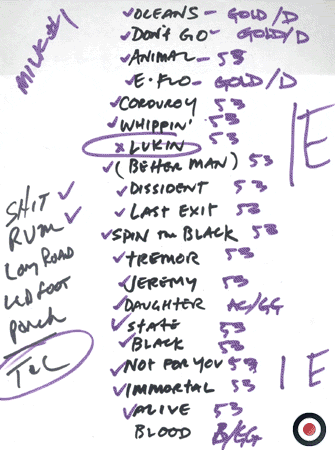 MILK #1
OCEANS - GOLD/D
DON'T GO - GOLD/D
ANIMAL - 53
E. FLO - GOLD/D
CORDUROY 53
WHIPPIN' 53
x LUKIN 53
(BETTER MAN) 53
DISSIDENT 53
LAST EXIT 53
SPIN THE BLACK 53
TREMOR 53
JEREMY 53
DAUGHTER AC/GG
STATE 53
BLACK 53
NOT FOR YOU 53
IMMORTAL 53
ALIVE 53
BLOOD B/GG
E
E
SHIT
RVM
LONG ROAD
LED FOOT
PORCH
T&C